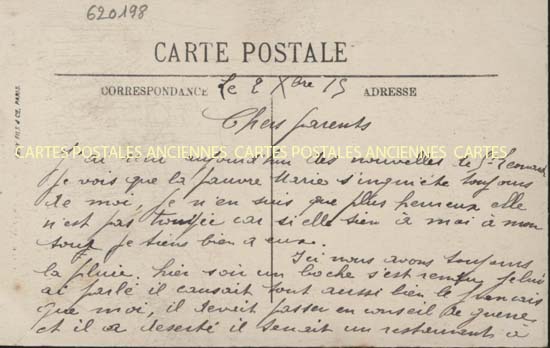 620198
CARTE POSTALE
CORRESPONDANCE Le 2 Xbre 15 ADRESSE
Chers parents
CARTES POSTALES ANCIENNES CARTES POSTALES ANCIENNES CARTES
J'ai aujourd'hui des nouvelles de St
Je vois que la pauvre Marie s'inquiète toujours
de moi, je n'en suis que plus heureux elle
n'est pas car si elle tien à moi à mon
tour je tiens bien a eux.
Ici nous avons toujours
la pluie. hier soir un boche s'est rendu je lui
ai parlé il causait tout aussi bien le français
que moi, il devait passer en conseil de guerre
et il a deserté il tenait un restaurants à